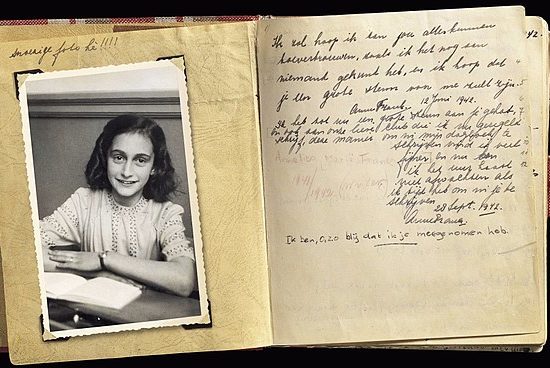 snoezige foto hè!!!!
Ik zal hoop ik aan jou alles kunnen
toevertrouwen, zoals ik het nog aan
niemand gekund heb, en ik hoop dat
je een grote steun voor me zult zijn.
Anne Frank. 12 Juni 1942.
Ik heb tot nu een grote steun aan je gehad,
en ook aan onze lieve club die ik nu geregeld
schrijf, deze manier om in mijn dagboek te
schrijven vind ik veel
fijner en nu kan
ik het uur haast
niet afwachten als
ik tijd heb om in je te
schrijven.
28 Sept. 1942.
Anne Frank.
Ik ben, o, zo blij dat ik je meegenomen heb.
Annelies Marie Frank
1941/
1942
42.